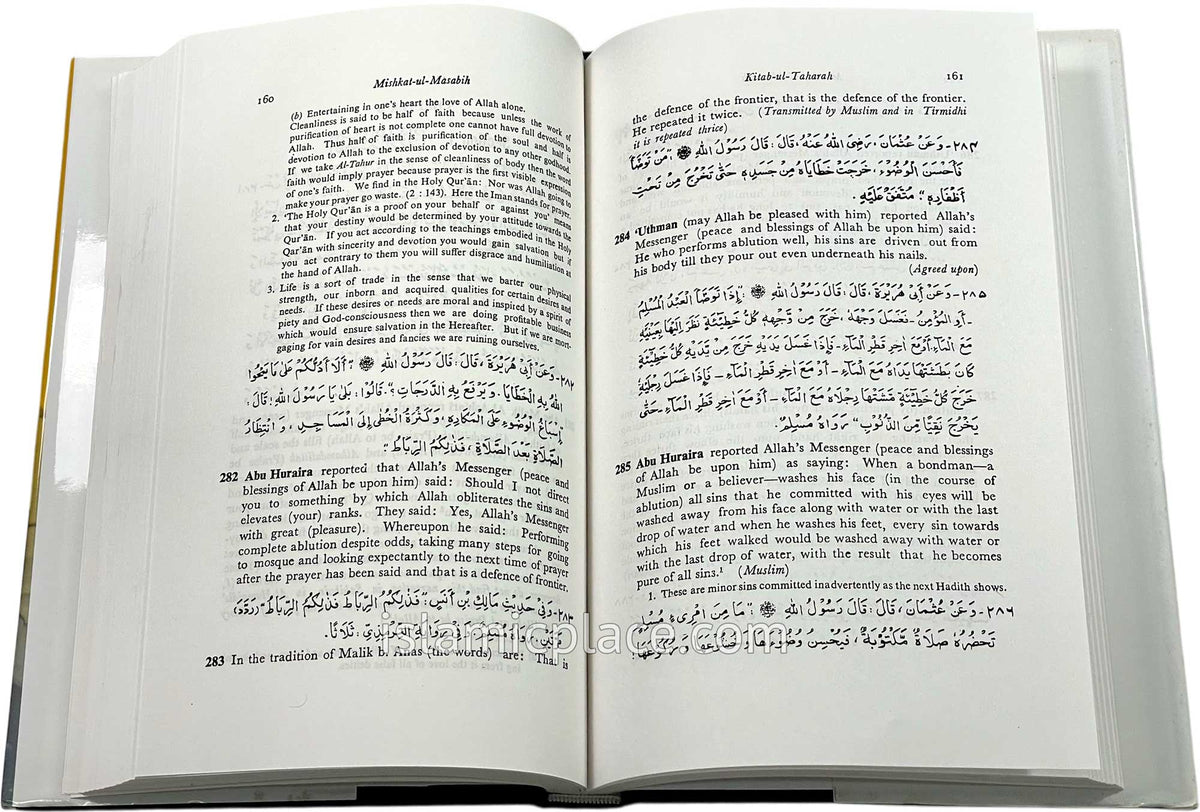 160
Mishkat-ul-Masabih
(b) Entertaining in one's heart the love of Allah alone.
Cleanliness is said to be half of faith because unless the work of
purification of heart is not complete one cannot have full devotion to
Allah. Thus half of faith is purification of the soul and half is
devotion to Allah to the exclusion of devotion to any other godhood.
If we take Al-Tahur in the sense of cleanliness of body then the word
faith would imply prayer because prayer is the first visible expression
of one's faith. We find in the Holy Qur'ān: Nor was Allah going to
make your prayer go waste. (2 : 143). Here the Iman stands for prayer.
2. 'The Holy Qur'ān is a proof on your behalf or against you' means
that your destiny would be determined by your attitude towards the
Qur'ān. If you act according to the teachings embodied in the Holy
Qar'ān with sincerity and devotion you would gain salvation but if
you act contrary to them you will suffer disgrace and humiliation at
the hand of Allah.
3. Life is a sort of trade in the sense that we barter our physical
strength, our inborn and acquired qualities for certain desires and
needs. If these desires or needs are moral and inspired by a spirit of
piety and God-consciousness then we are doing profitable business
which would ensure salvation in the Hereafter. But if we are mort-
gaging for vain desires and fancies we are ruining ourselves.
٢٨٢- وَعَنْ أَبِي هُرَيْرَةَ، قَالَ: قَالَ رَسُولُ اللهِ ﷺ "أَلَا أَدُلُّكُمْ عَلَى مَا يَمْحُوا
اللهُ بِهِ الْخَطَايَا. وَيَرْفَعُ بِهِ الدَّرَجَاتِ؟". قَالُوا: بَلَى يَا رَسُولَ اللهِ! قَالَ:
إِسْبَاغُ الْوُضُوْءِ عَلَى الْمَكَارِهِ، وَكَثْرَةُ الْخُطَى إِلَى الْمَسَاجِدِ، وَانْتِظَارُ
الصَّلَاةِ بَعْدَ الصَّلَاةِ، فَذَلِكُمُ الرِّبَاطُ".
282 Abu Huraira reported that Allah's Messenger (peace and
blessings of Allah be upon him) said: Should I not direct
you to something by which Allah obliterates the sins and
elevates (your) ranks. They said: Yes, Allah's Messenger
with great (pleasure). Whereupon he said: Performing
complete ablution despite odds, taking many steps for going
to mosque and looking expectantly to the next time of prayer
after the prayer has been said and that is a defence of frontier.
٢٨٣- وَفِي حَدِيْثِ مَالِكِ بْنِ أَنَسٍ: "فَذَلِكُمُ الرِّبَاطُ فَذَلِكُمُ الرِّبَاطُ" رَدَّدَهُ
مَرَّتَيْنِ. رَوَاهُ مُسْلِمٌ. وَفِي رِوَايَةِ التِّرْمِذِيِّ: ثَلَاثًا.
283 In the tradition of Malik b. Anas (the words) are: That is
Kitab-ul-Taharah
161
the defence of the frontier, that is the defence of the frontier.
He repeated it twice. (Transmitted by Muslim and in Tirmidhi
it is repeated thrice)
٢٨٤- وَعَنْ عُثْمَانَ، رَضِيَ اللهُ عَنْهُ، قَالَ: قَالَ رَسُوْلُ اللهِ ﷺ: "مَنْ تَوَضَّأَ
فَأَحْسَنَ الْوُضُوْءَ، خَرَجَتْ خَطَايَاهُ مِنْ جَسَدِهِ حَتَّى تَخْرُجَ مِنْ تَحْتِ
أَظْفَارِهِ". مُتَّفَقٌ عَلَيْهِ.
284 'Uthman (may Allah be pleased with him) reported Allah's
Messenger (peace and blessings of Allah be upon him) said:
He who performs ablution well, his sins are driven out from
his body till they pour out even underneath his nails.
(Agreed upon)
٢٨٥- وَعَنْ أَبِي هُرَيْرَةَ، قَالَ: قَالَ رَسُوْلُ اللهِ ﷺ: "إِذَا تَوَضَّأَ الْعَبْدُ الْمُسْلِمُ
- أَوِ الْمُؤْمِنُ- فَغَسَلَ وَجْهَهُ، خَرَجَ مِنْ وَجْهِهِ كُلُّ خَطِيْئَةٍ نَظَرَ إِلَيْهَا بِعَيْنَيْهِ
مَعَ الْمَاءِ، أَوْ مَعَ آخِرِ قَطْرِ الْمَاءِ- فَإِذَا غَسَلَ يَدَيْهِ خَرَجَ مِنْ يَدَيْهِ كُلُّ خَطِيْئَةٍ
كَانَ بَطَشَتْهَا يَدَاهُ مَعَ الْمَاءِ - أَوْ مَعَ آخِرِ قَطْرِ الْمَاءِ - فَإِذَا غَسَلَ رِجْلَيْهِ
خَرَجَ كُلُّ خَطِيْئَةٍ مَشَتْهَا رِجْلَاهُ مَعَ الْمَاءِ - أَوْ مَعَ آخِرِ قَطْرِ الْمَاءِ - حَتَّى
يَخْرُجَ نَقِيًّا مِنَ الذُّنُوْبِ" رَوَاهُ مُسْلِمٌ.
285 Abu Huraira reported Allah's Messenger (peace and blessings
of Allah be upon him) as saying: When a bondman—a
Muslim or a believer—washes his face (in the course of
ablution) all sins that he committed with his eyes will be
washed away from his face along with water or with the last
drop of water and when he washes his feet, every sin towards
which his feet walked would be washed away with water or
with the last drop of water, with the result that he becomes
pure of all sins.¹ (Muslim)
1. These are minor sins committed inadvertently as the next Hadith shows.
٢٨٦- وَعَنْ عُثْمَانَ، قَالَ: قَالَ رَسُوْلُ اللهِ ﷺ: "مَا مِنِ امْرِىءٍ مُسْلِمٍ
تَحْضُرُهُ صَلَاةٌ مَكْتُوْبَةٌ، فَيُحْسِنُ وُضُوْءَهَا وَخُشُوْعَهَا وَرُكُوْعَهَا،
islamicplace.com